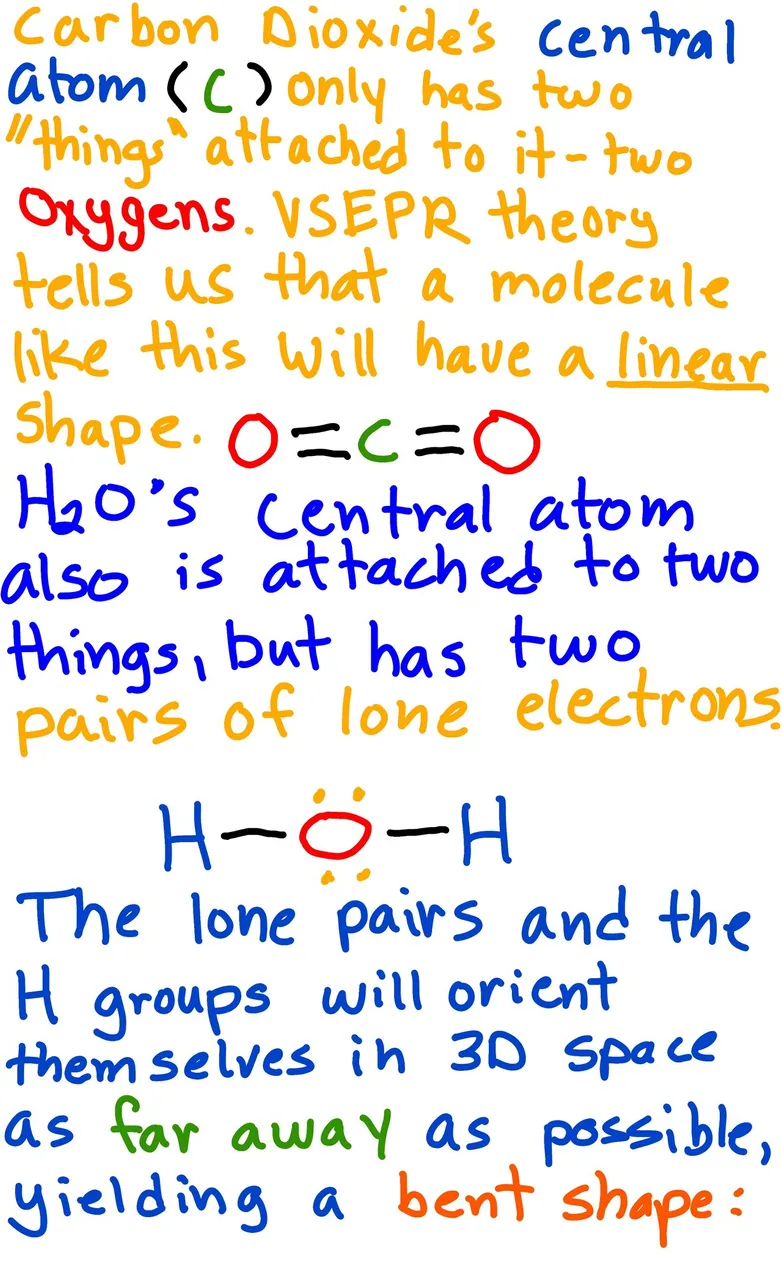 Carbon Dioxide's central
atom (C) only has two
"things" attached to it - two
Oxygens. VSEPR theory
tells us that a molecule
like this will have a linear
shape. O=C=O
H2O's central atom
also is attached to two
things, but has two
pairs of lone electrons.
H-O-H
The lone pairs and the
H groups will orient
themselves in 3D space
as far away as possible,
yielding a bent shape: